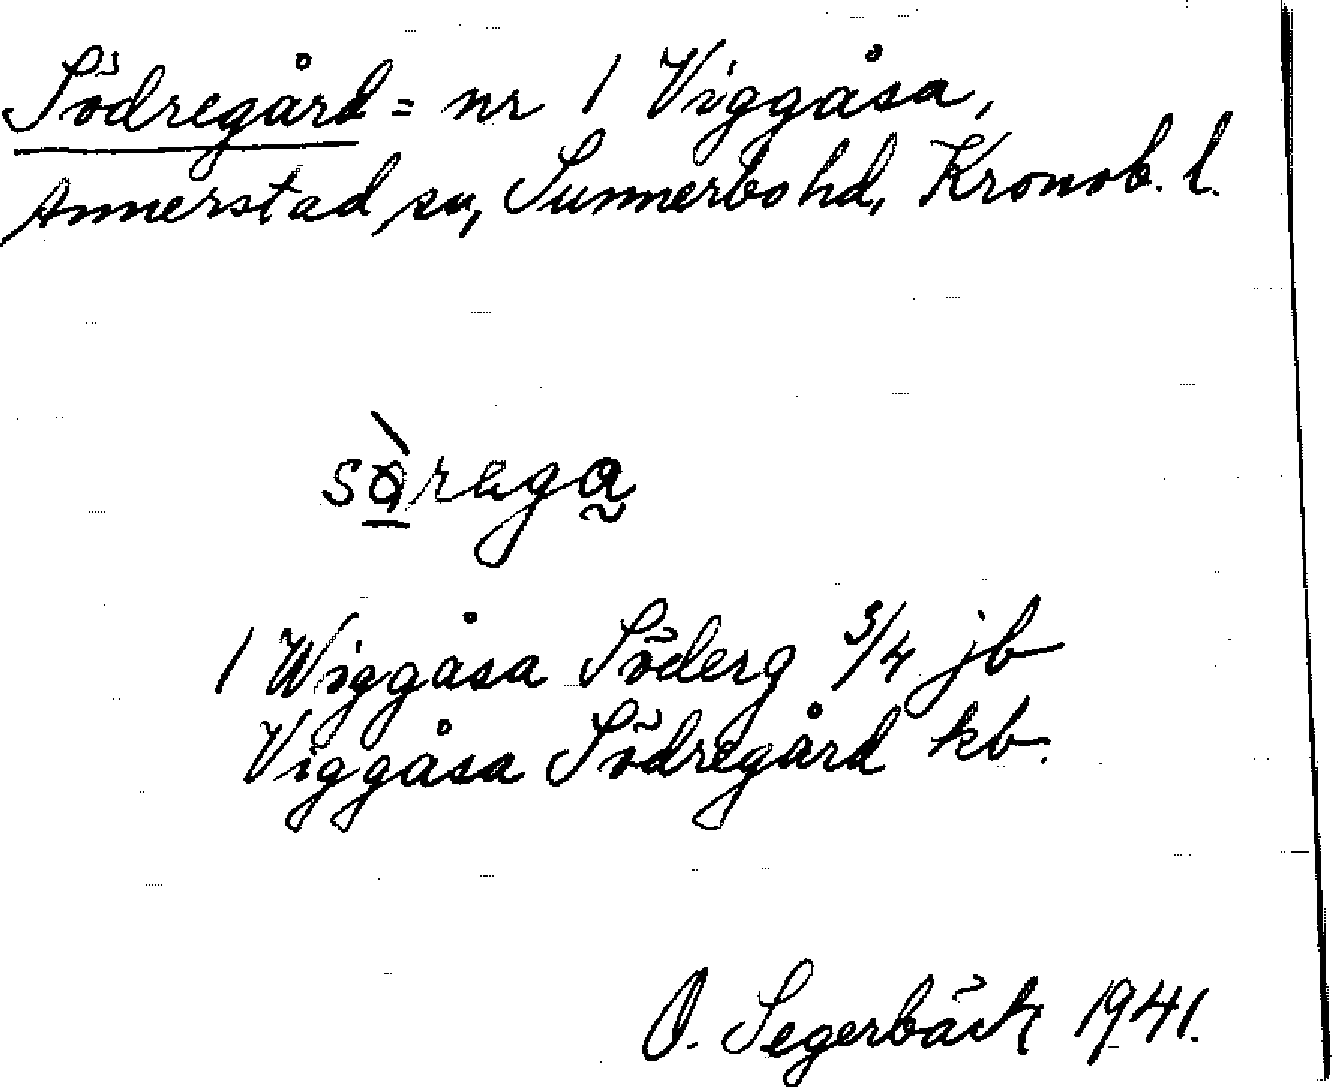 Södregård = nr 1 Viggåsa,
Annerstad sn, Sunnerbo hd, Kronob. l.
1 Wiggåsa Söderg 3/4 jb
Viggåsa Södregård kb.
O. Segerbäck 1941.